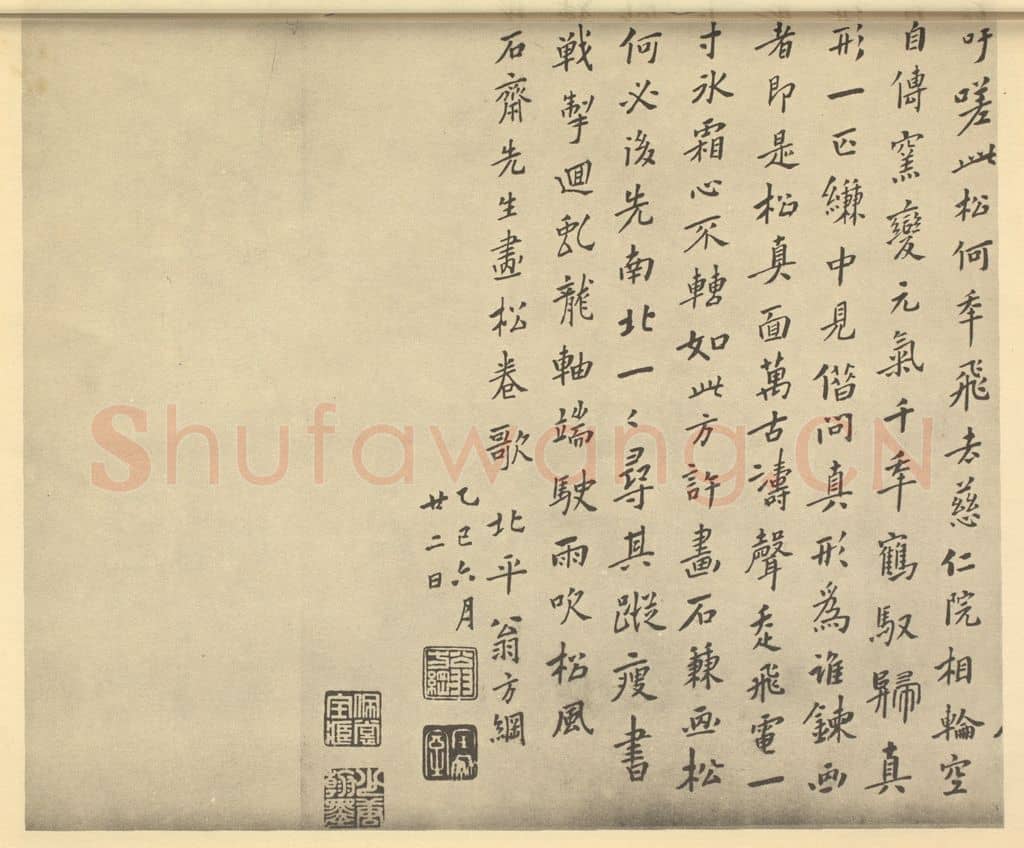 吁嗟此松何年飛去慈仁院相輪空
自傳窯變元氣千年鶴馭歸真
形一匹縑中見偕問真形為誰鍊画
者即是松真面萬古濤聲走飛電一
寸冰霜心不轉如此方許畫石兼画松
何必後先南北一〻尋其蹤瘦書
戰掣迴虬龍軸端駛雨吹松風
石齋先生畫松卷歌 北平翁方綱
乙巳六月
廿二日
翁方綱
少唐翰墨
Shufawang.CN